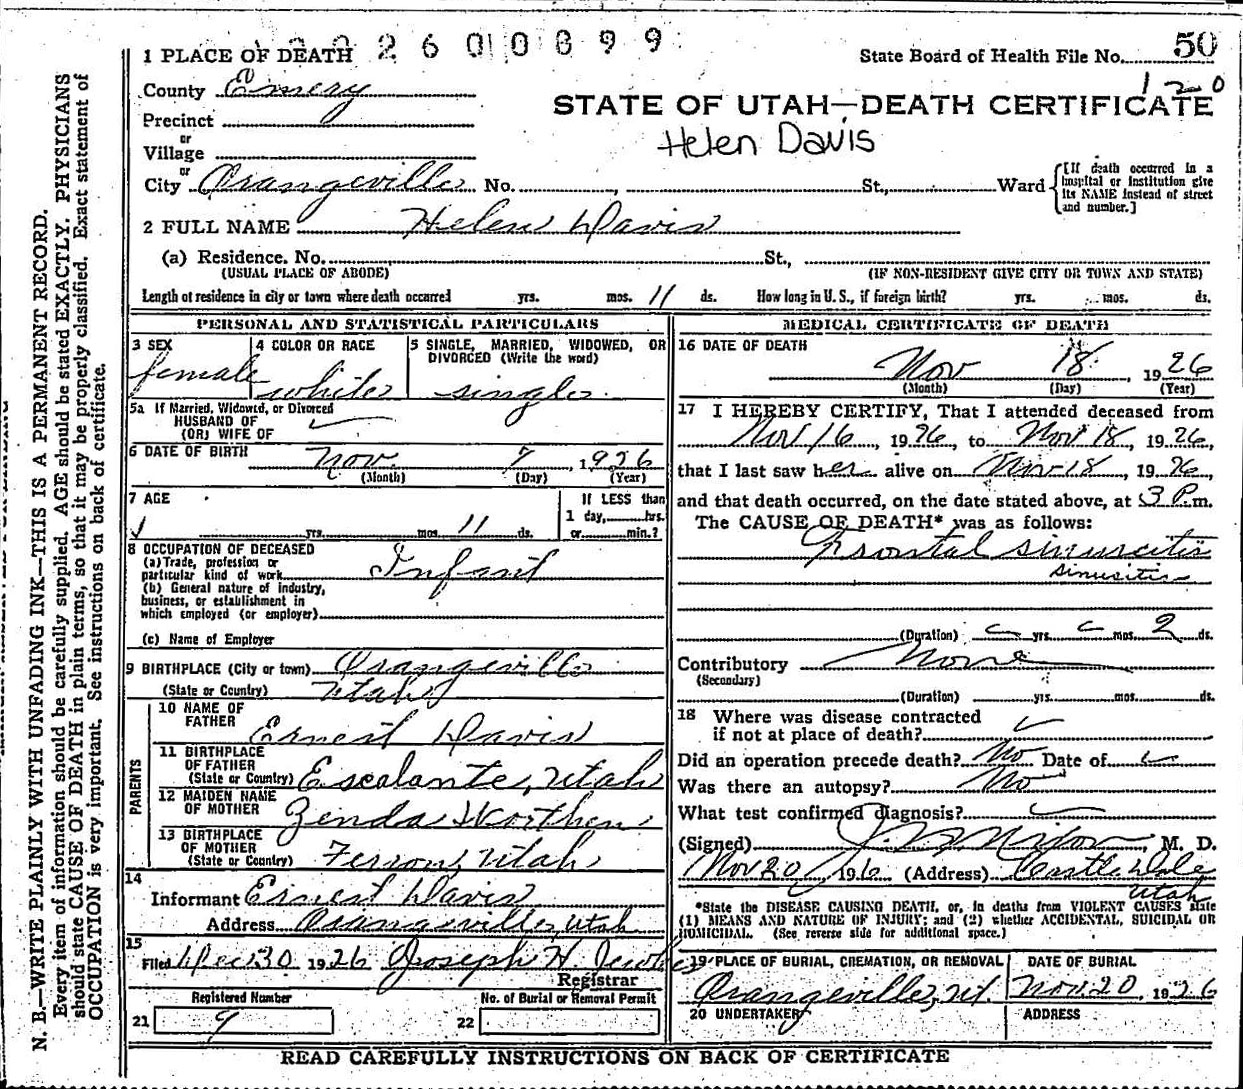 2 6 0 0 8 9 9
1 PLACE OF DEATH
State Board of Health File No. 50
120
County Emery
STATE OF UTAH—DEATH CERTIFICATE
Precinct
Helen Davis
or
Village
or
City Orangeville No. , St., Ward
[If death occurred in a hospital or institution give its NAME instead of street and number.]
2 FULL NAME Helen Davis
(a) Residence. No. St.,
(USUAL PLACE OF ABODE) (IF NON-RESIDENT GIVE CITY OR TOWN AND STATE)
Length of residence in city or town where death occurred yrs. mos. 11 ds. How long in U. S., if foreign birth? yrs. mos. ds.
PERSONAL AND STATISTICAL PARTICULARS
3 SEX female
4 COLOR OR RACE white
5 SINGLE, MARRIED, WIDOWED, OR DIVORCED (Write the word) single
5a If Married, Widowed, or Divorced
HUSBAND OF
(OR) WIFE OF
6 DATE OF BIRTH Nov. 7, 1926
(Month) (Day) (Year)
7 AGE
yrs. mos. 11 ds.
If LESS than
1 day, hrs.
or min.?
8 OCCUPATION OF DECEASED
(a) Trade, profession or
particular kind of work Infant
(b) General nature of industry,
business, or establishment in
which employed (or employer)
(c) Name of Employer
9 BIRTHPLACE (City or town) Orangeville
(State or Country) Utah
PARENTS
10 NAME OF
FATHER Ernest Davis
11 BIRTHPLACE
OF FATHER
(State or Country) Escalante, Utah
12 MAIDEN NAME
OF MOTHER Zenda Worthen
13 BIRTHPLACE
OF MOTHER
(State or Country) Ferron, Utah
14
Informant Ernest Davis
Address Orangeville, Utah
15
Filed Dec 30 1926 Joseph H.
Registrar
Registered Number No. of Burial or Removal Permit
21 9 22
MEDICAL CERTIFICATE OF DEATH
16 DATE OF DEATH
Nov 18, 1926
(Month) (Day) (Year)
17 I HEREBY CERTIFY, That I attended deceased from
Nov 16, 1926, to Nov 18, 1926,
that I last saw her alive on Nov 18, 1926
and that death occurred, on the date stated above, at 3 P.m.
The CAUSE OF DEATH* was as follows:
Frontal sinuscitis
sinusitis
(Duration) yrs. mos. 2 ds.
Contributory None
(Secondary)
(Duration) yrs. mos. ds.
18 Where was disease contracted
if not at place of death?
Did an operation precede death? No Date of
Was there an autopsy? No
What test confirmed diagnosis?
(Signed) Nixon, M. D.
Nov 20, 1926 (Address) Castle Dale
Utah
*State the DISEASE CAUSING DEATH, or, in deaths from VIOLENT CAUSES state
(1) MEANS AND NATURE OF INJURY; and (2) whether ACCIDENTAL, SUICIDAL OR
HOMICIDAL. (See reverse side for additional space.)
19 PLACE OF BURIAL, CREMATION, OR REMOVAL DATE OF BURIAL
Orangeville, Ut. Nov. 20, 1926
20 UNDERTAKER ADDRESS
READ CAREFULLY INSTRUCTIONS ON BACK OF CERTIFICATE
N. B.—WRITE PLAINLY WITH UNFADING INK—THIS IS A PERMANENT RECORD.
Every item of information should be carefully supplied. AGE should be stated EXACTLY. PHYSICIANS
should state CAUSE OF DEATH in plain terms, so that it may be properly classified. Exact statement of
OCCUPATION is very important. See instructions on back of certificate.